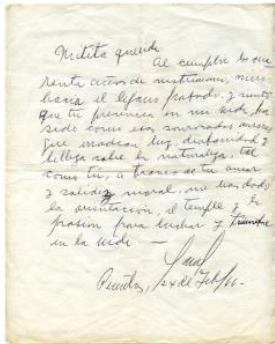 Mitita querida
Al cumplir los cua
renta años de matrimonio, miro
hacia el lejano pasado y siento
que tu presencia en mi vida, ha
sido como esas sonrosadas auroras
que irradian luz, diafanidad y
belleza sobre la naturaleza, tal
como tú, a través de tu amor
y solidez moral, me has dado
la orientación, el temple y la
pasión para luchar y triunfar
en la vida —
24 de Feb/66-